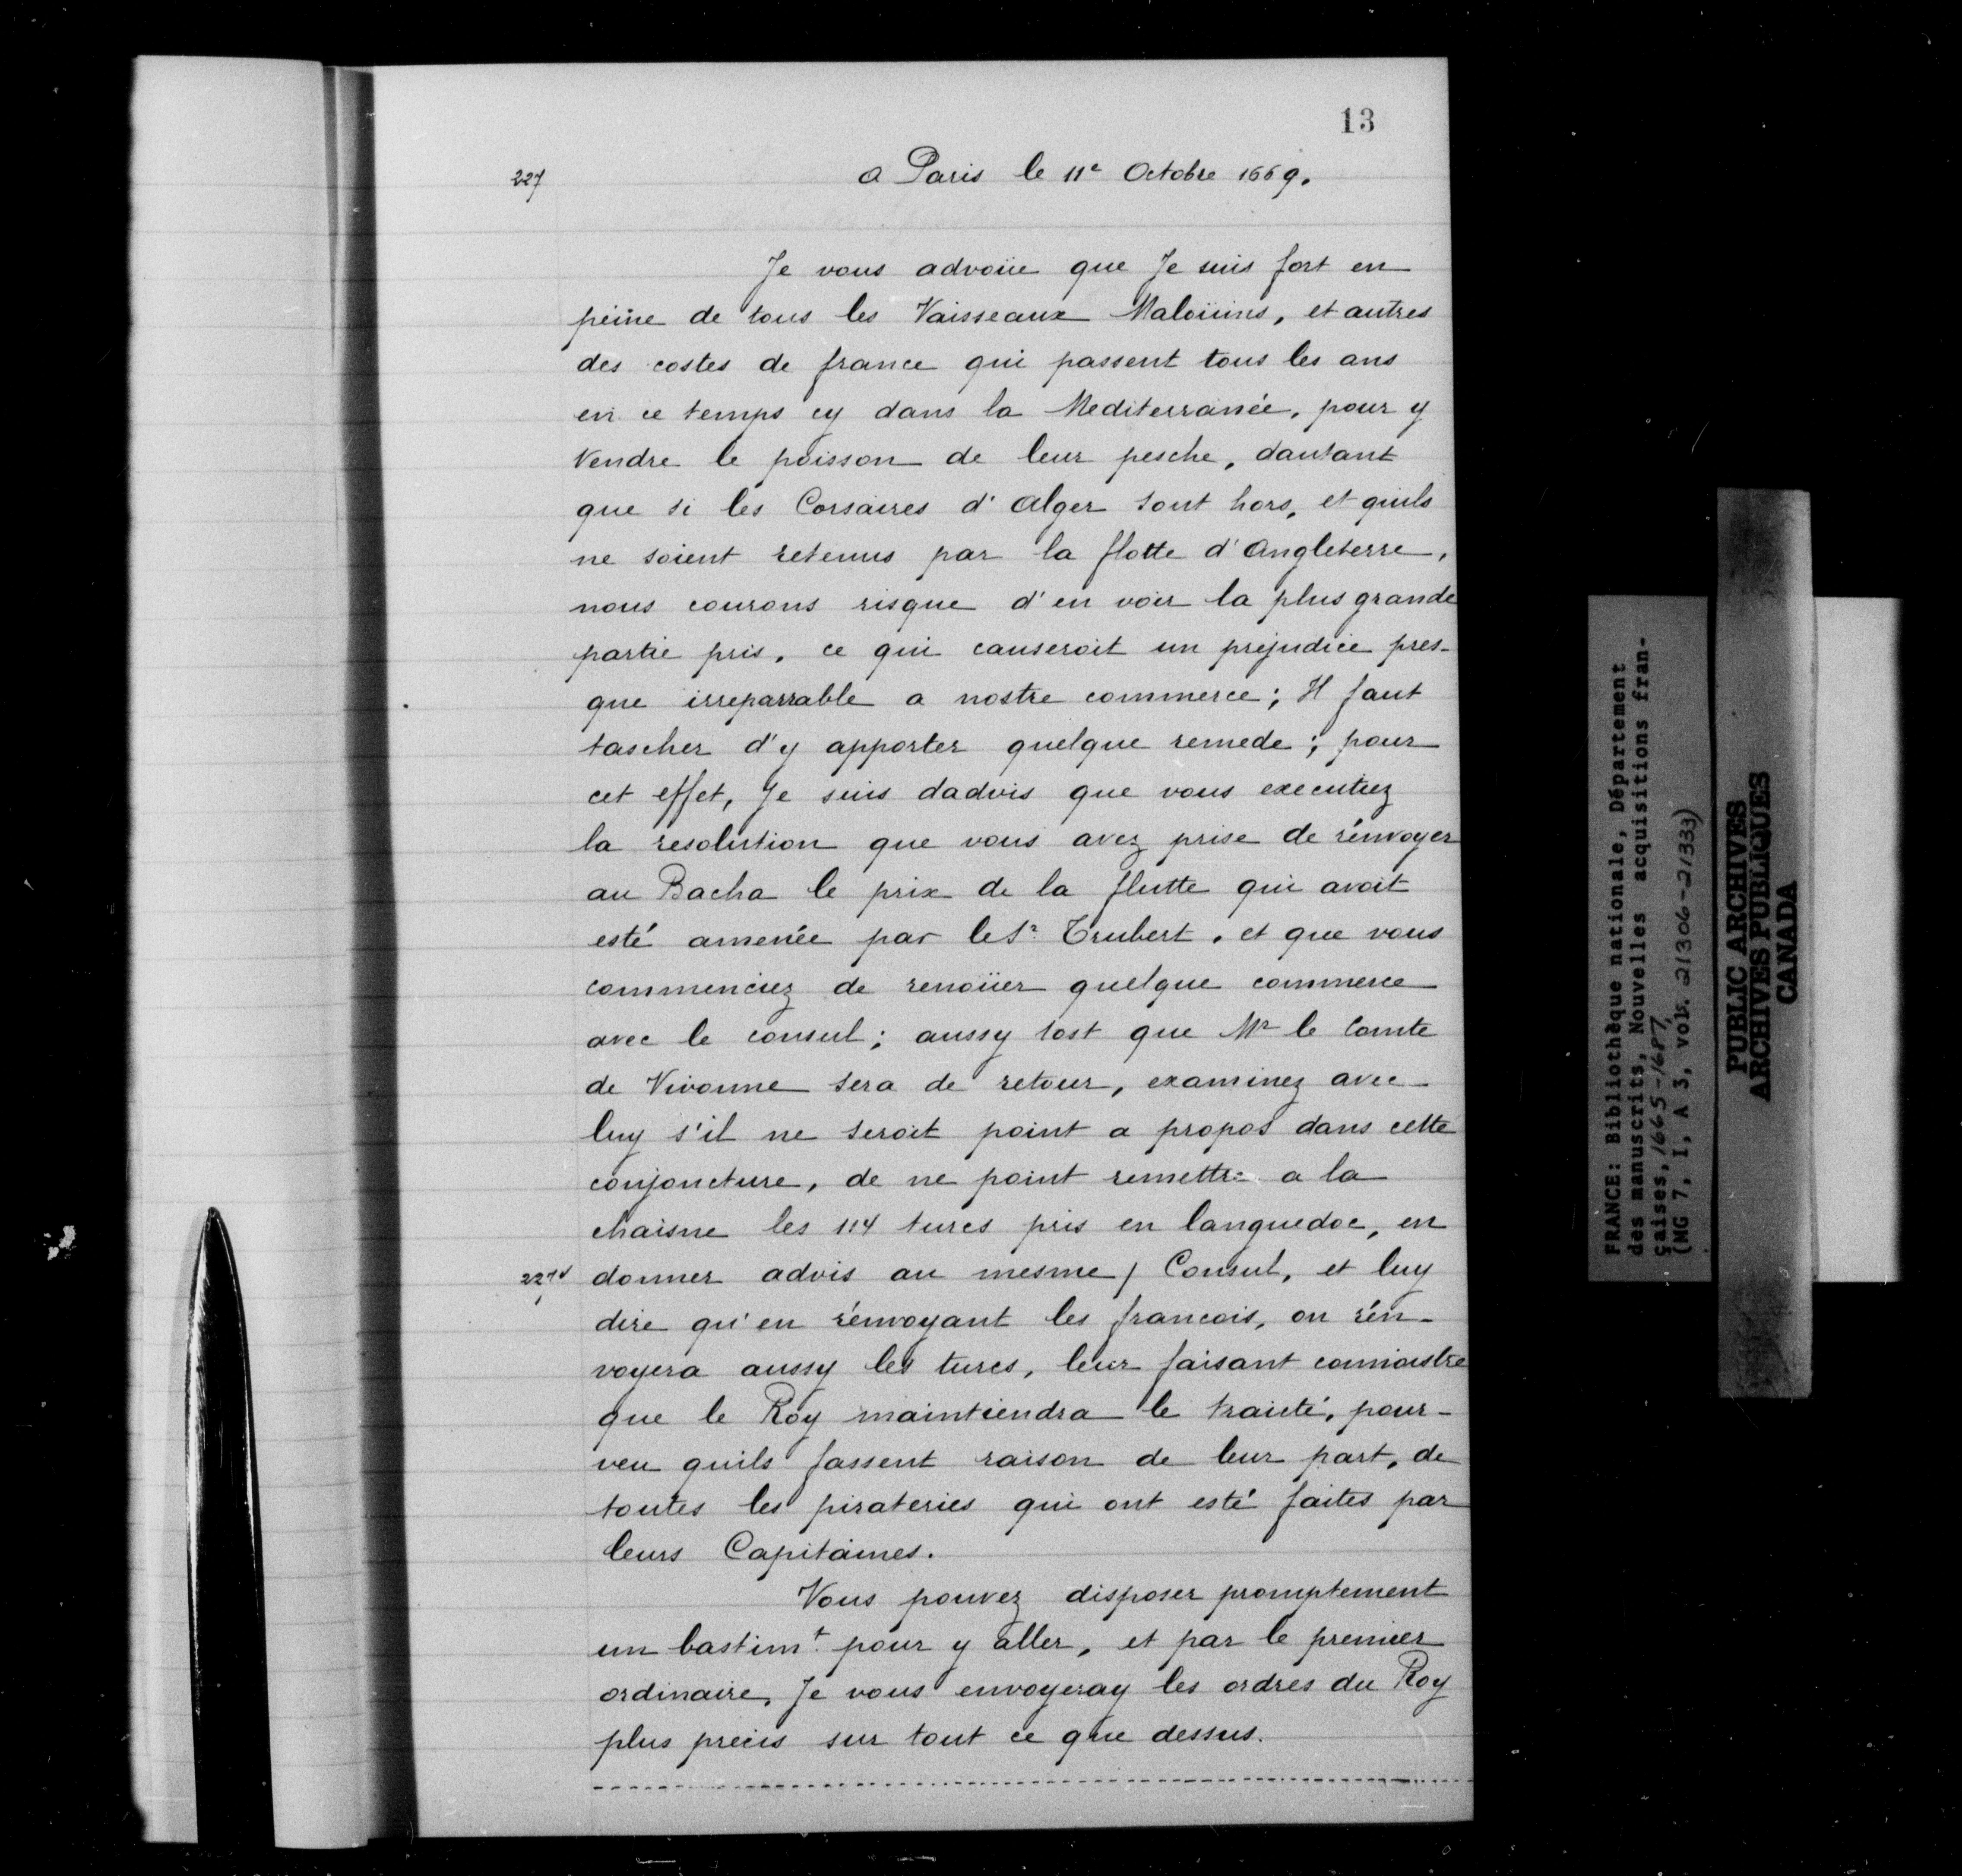 13
227
a Paris le 11e Octobre 1669.
Je vous advoüe que Je suis fort en
peine de tous les Vaisseaux Maloüins, et autres
des costes de france qui passent tous les ans
en ce temps cy dans la Mediterranée, pour y
vendre le poisson de leur pesche, dautant
que si les Corsaires d'Alger sont hors, et quils
ne soient retenus par la flotte d'Angleterre,
nous courons risque d'en voir la plus grande
partie pris, ce qui causeroit un prejudice pres-
que irreparrable a nostre commerce; Il faut
tascher d'y apporter quelque remede; pour
cet effet, Je suis dadvis que vous executiez
la resolution que vous avez prise de rénvoyer
au Bacha le prix de la flutte qui avoit
esté amenée par le Sr. Trubert, et que vous
commenciez de renoüer quelque commerce
avec le consul; aussy tost que Mr le Comte
de Vivonne sera de retour, examinez avec
luy s'il ne seroit point a propos dans cette
conjoncture, de ne point remettre a la
chaisne les 114 turcs pris en languedoc, en
227v
donner advis au mesme / Consul, et luy
dire qu'en rénvoyant les francois, on rén-
voyera aussy les turcs, leur faisant connoistre
que le Roy maintiendra le traité, pour-
veu quils fassent raison de leur part, de
toutes les pirateries qui ont esté faites par
leurs Capitaines.
Vous pouvez disposer promptement
un bastimt. pour y aller, et par le premier
ordinaire, Je vous envoyeray les ordres du Roy
plus precis sur tout ce que dessus.
FRANCE: Bibliothèque nationale, Département
des manuscrits, Nouvelles acquisitions fran-
çaises, 1665-1687
(MG 7, I, A 3, vols. 21306-21333)
PUBLIC ARCHIVES
ARCHIVES PUBLIQUES
CANADA